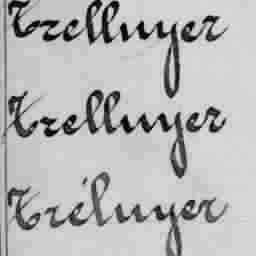 Trelluyer
Trelluyer
Tréluyer